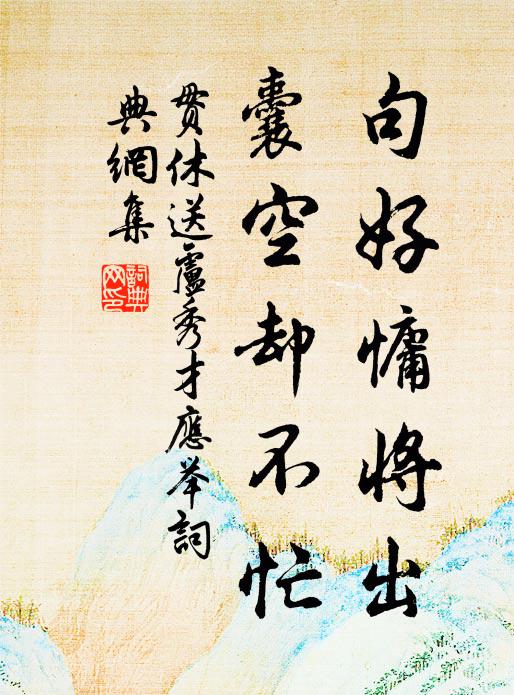 句好慵將出
囊空却不忙
貫休送盧秀才應举詞
典網集
詞典
网印